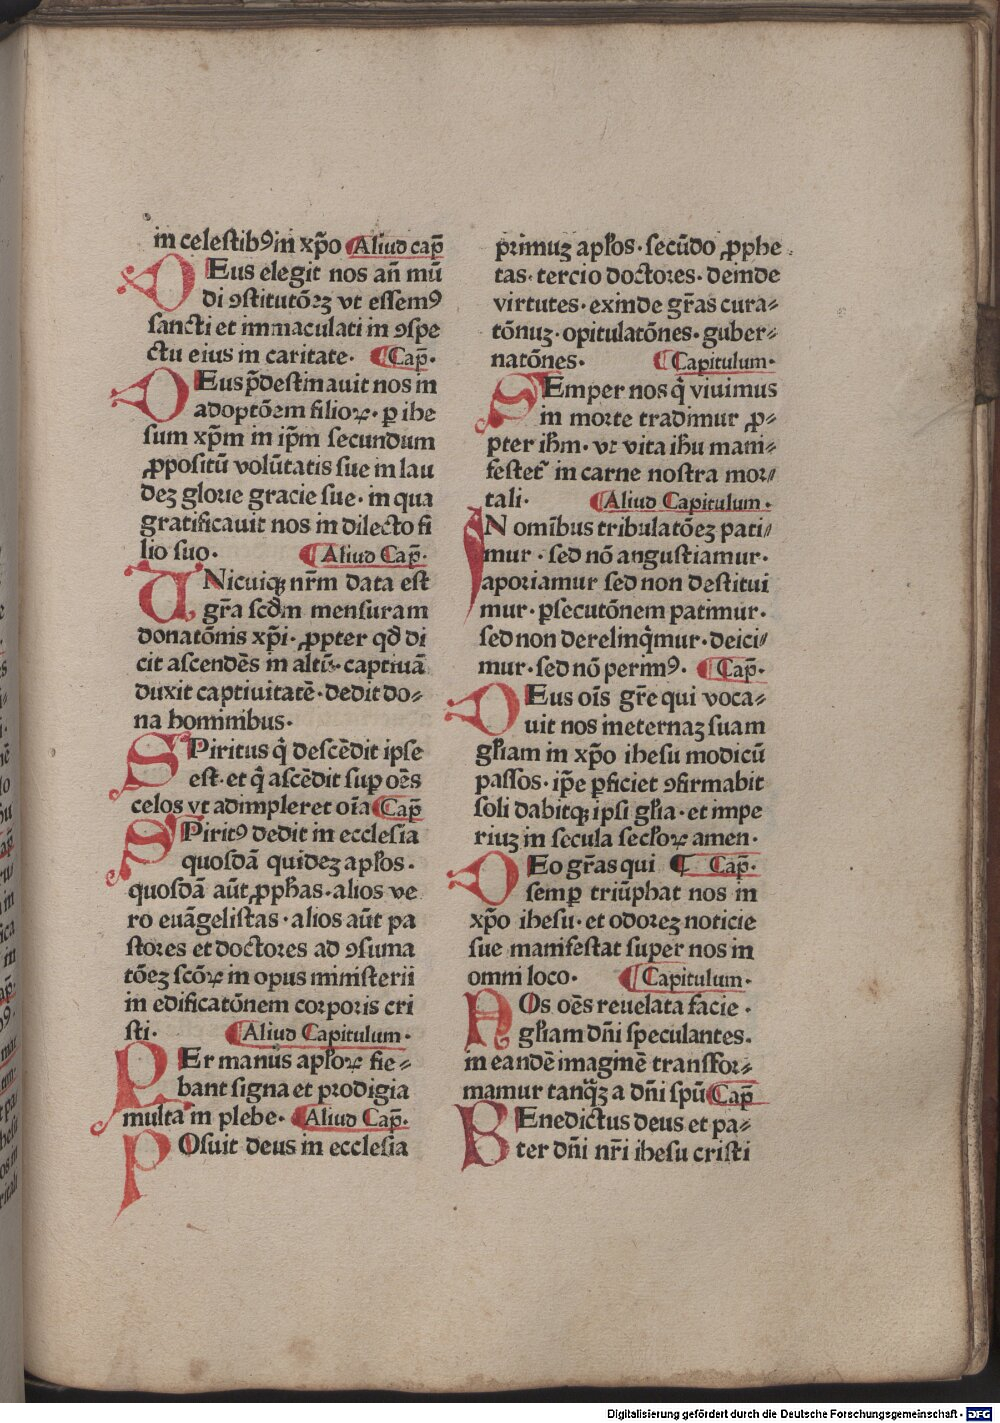 in celestibꝰ in xp̄o Aliud cap̄
DEus elegit nos an̄ mū
di ↄstitutōeꝫ vt essemꝰ
sancti et inmaculati in ↄspe
ctu eius in caritate· Cap̄·
DEus p̄destinauit nos in
adoptōem filioꝝ· ꝑ ihe
sum xp̄m in ip̄m secundum
ꝓpositū volūtatis sue in lau
deꝫ glorie gracie sue· in qua
gratificauit nos in dilecto fi
lio suo· Aliud Cap̄·
UNicuiqꝫ nr̄m data est
gr̄a scdm̄ mensuram
donatōnis xp̄i· ꝓpter qd̄ di
cit ascendēs in altū· captiuā
duxit captiuitatē· dedit do⸗
na hominibus·
SPiritus q̄ descēdit ipse
est· et q̄ ascēdit suꝑ oēs
celos vt adimpleret oīa Cap̄
SPiritꝰ dedit in ecclesia
quosdā quidez apl̄os·
quosdā aūt ꝓph̄as· alios ve
ro euāgelistas· alios aūt pa
stores et doctores ad ↄsuma
tōeꝫ scōꝝ in opus ministerii
in edificatōnem corporis cri
sti· Aliud Capitulum·
PEr manus apl̄oꝝ fie⸗
bant signa et prodigia
multa in plebe· Aliud Cap̄·
POsuit deus in ecclesia
primuꝫ apl̄os· secūdo ꝓphe
tas· tercio doctores· deinde
virtutes· exinde gr̄as cura⸗
tōnuꝫ· opitulatōnes· guber⸗
natōnes· Capitulum·
SEmper nos q̄ viuimus
in morte tradimur ꝓ⸗
pter ih̄m· vt vita ih̄u mani⸗
festet̄ in carne nostra mor⸗
tali· Aliud Capitulum·
IN omībus tribulatōeꝫ pati⸗
mur· sed nō angustiamur·
aporiamur sed non destitui
mur· ꝑsecutōnem patimur·
sed non derelinq̄mur· deici⸗
mur· sed nō perimꝰ· Cap̄·
DEus oīs gr̄e qui voca⸗
uit nos in eternaꝫ suam
gl̄iam in xp̄o ihesu modicū
passos· ip̄e ꝑficiet ↄfirmabit
solidabitqꝫ ipsi gl̄ia· et impe
riuꝫ in secula secl̄oꝝ amen·
DEo gr̄as qui ¶ Cap̄·
semꝑ triūphat nos in
xp̄o ihesu· et odoreꝫ noticie
sue manifestat super nos in
omni loco· Capitulum·
NOs oēs reuelata facie·
gl̄iam dn̄i speculantes·
in eandē imaginē transfor⸗
mamur tanq̄ꝫ a dn̄i spū Cap̄
BEnedictus deus et pa⸗
ter dn̄i nr̄i ihesu cristi
Digitalisierung gefördert durch die Deutsche Forschungsgemeinschaft - DFG